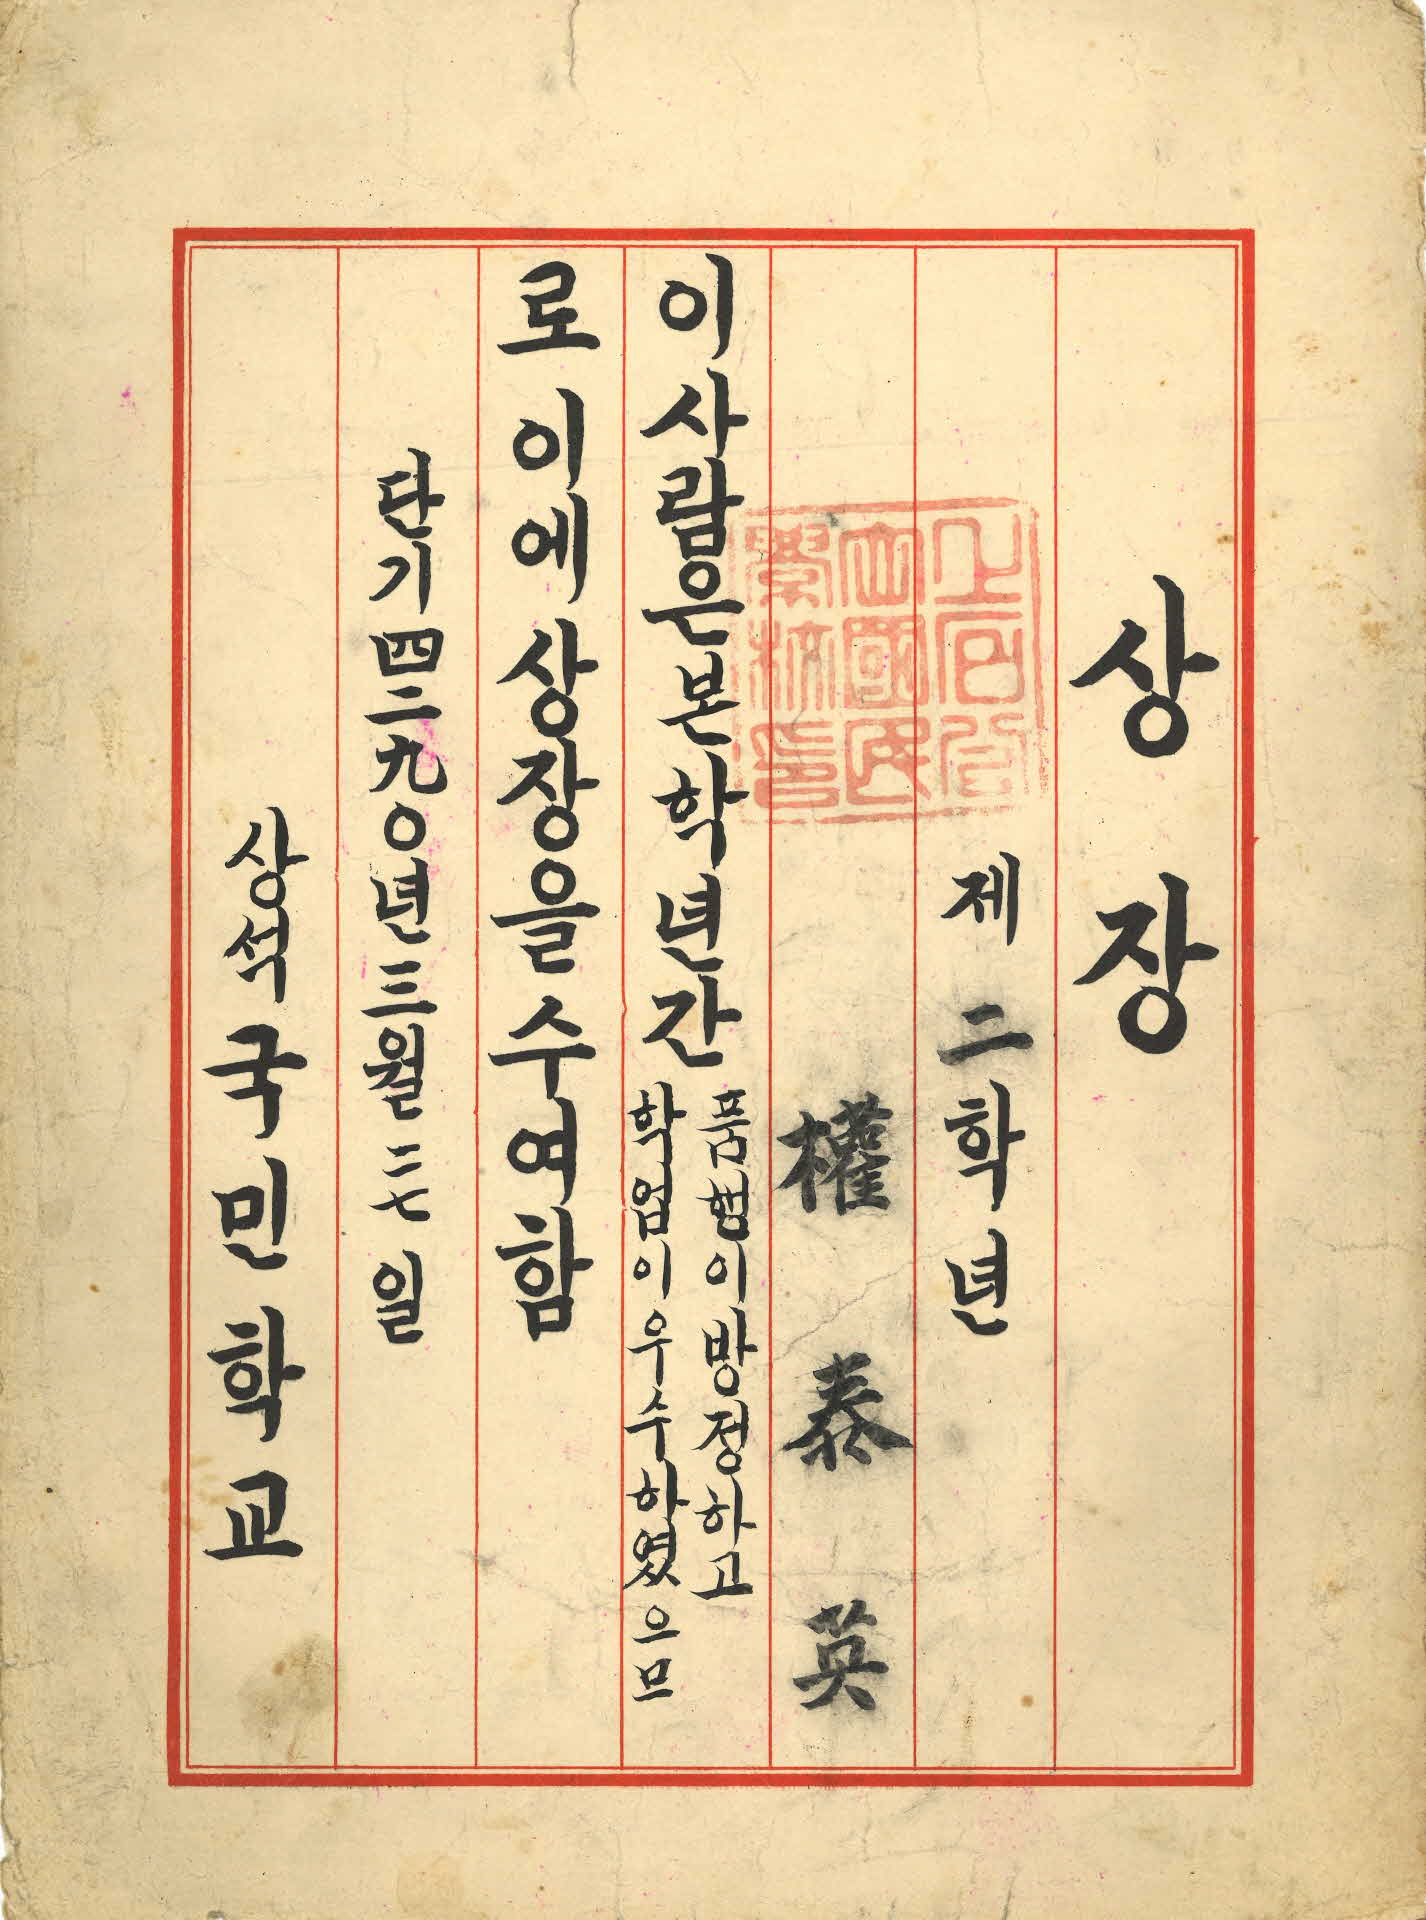 상장
제二학년
權泰英
이 사람은 본 학년간
품행이 방정하고
학업이 우수하였으므
로 이에 상장을 수여함
단기 四二九〇년 三월 二七일
상석국민학교
上石公
立國民
學校印